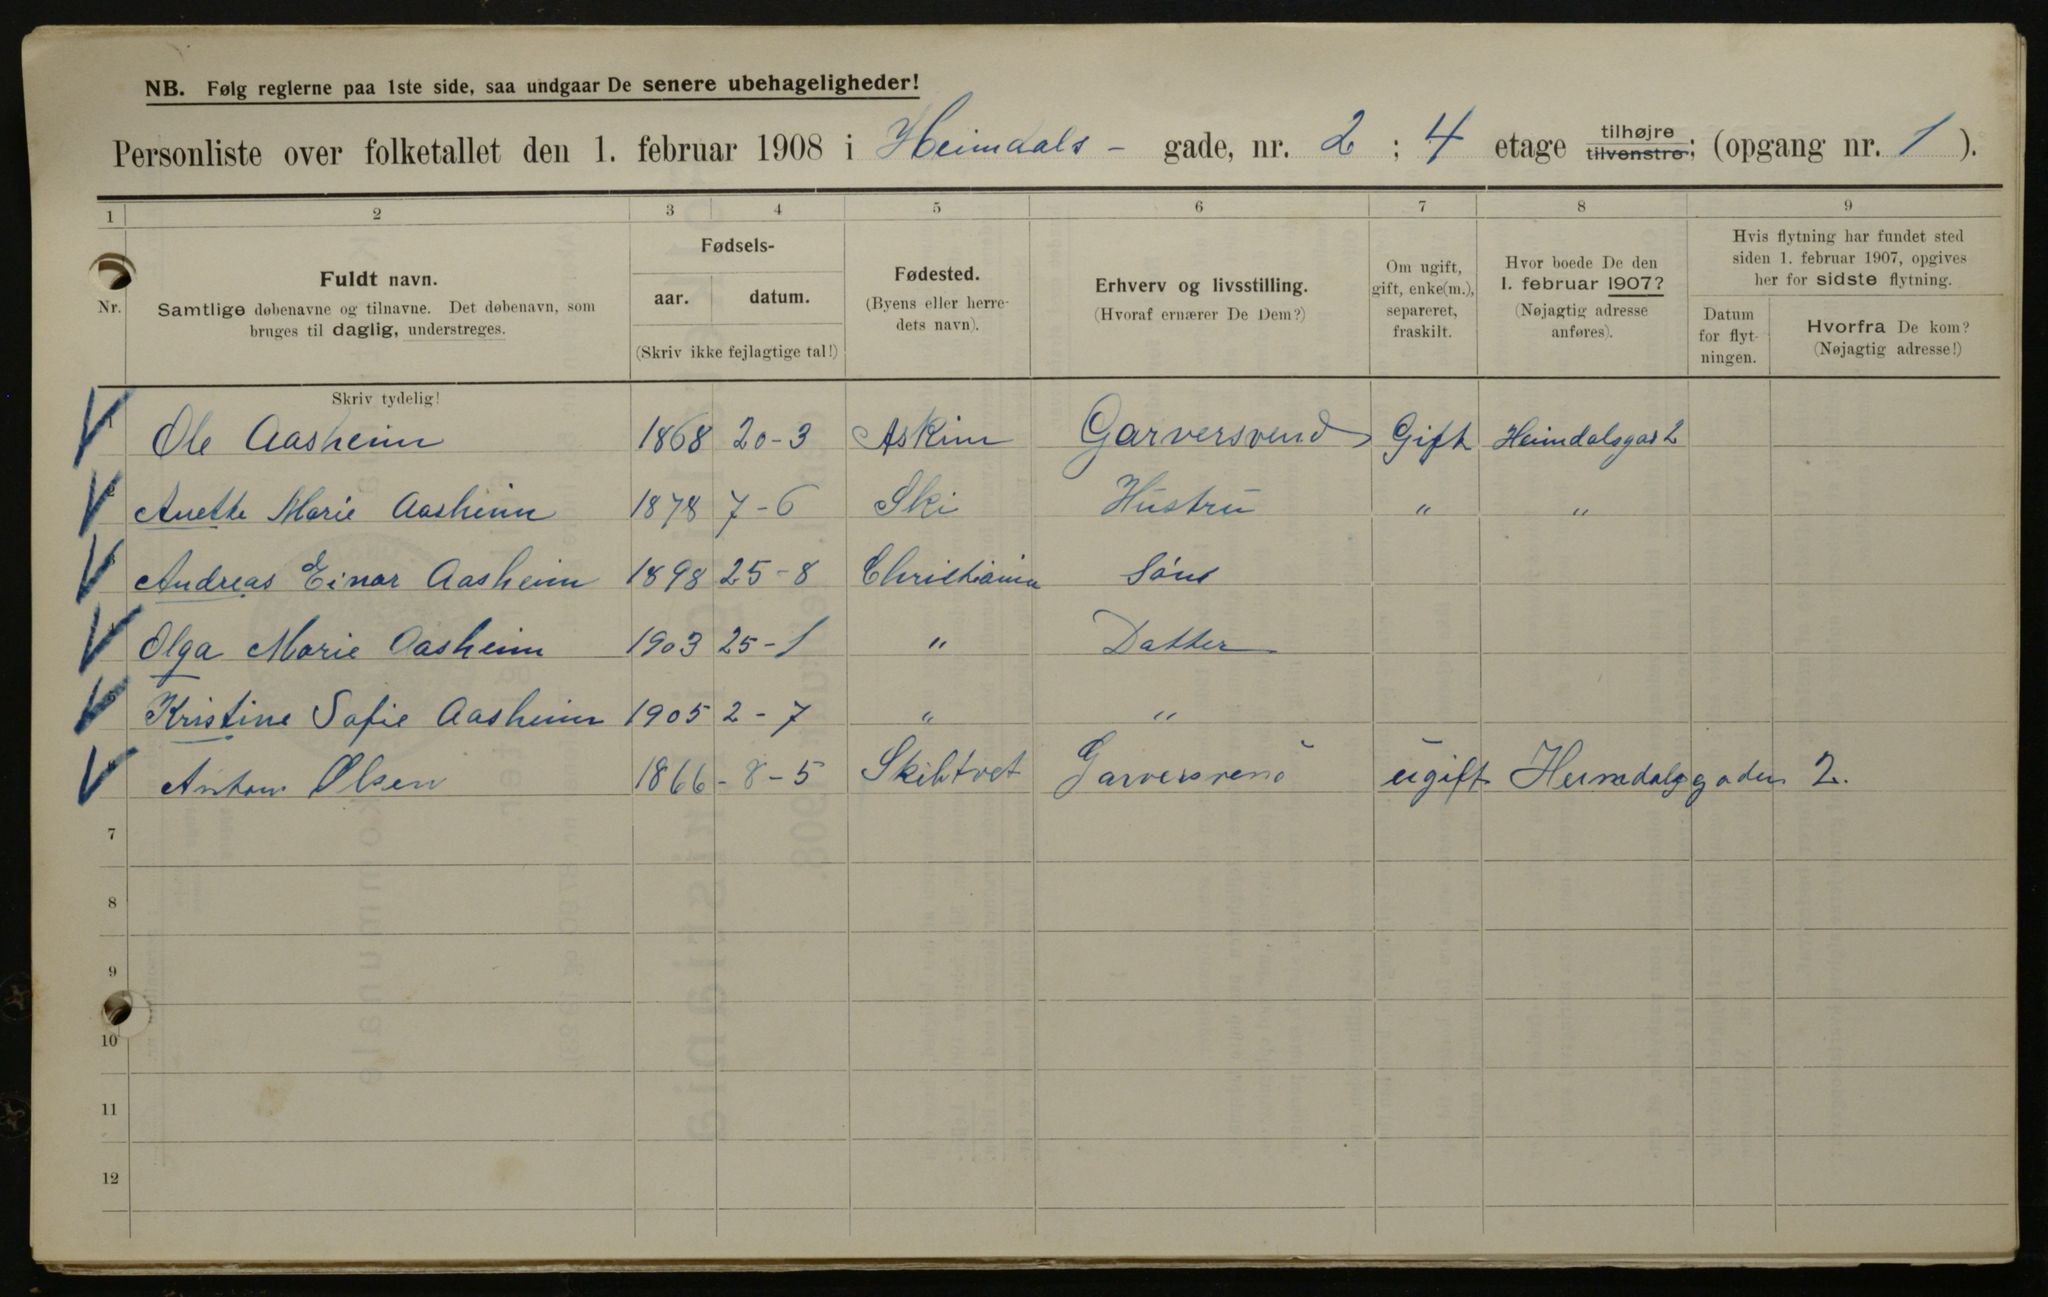 NB. Følg reglerne paa 1ste side, saa undgaar De senere ubehageligheder!
Personliste over folketallet den 1. februar 1908 i Heimdals - gade, nr. 2 ; 4 etage tilhøjre tilvenstre; (opgang nr. 1 ).
1 2 3 4 5 6 7 8 9
Nr.
Fuldt navn.
Samtlige døbenavne og tilnavne. Det døbenavn, som
bruges til daglig, understreges.
Skriv tydelig!
Fødsels-
aar. datum.
(Skriv ikke fejlagtige tal!)
Fødested.
(Byens eller herre-
dets navn).
Erhverv og livsstilling.
(Hvoraf ernærer De Dem?)
Om ugift,
gift, enke(m.),
separeret,
fraskilt.
Hvor boede De den
1. februar 1907?
(Nøjagtig adresse
anføres).
Hvis flytning har fundet sted
siden 1. februar 1907, opgives
her for sidste flytning.
Datum
for flyt-
ningen.
Hvorfra De kom?
(Nøjagtig adresse!)
1 Ole Aasheim 1868 20-3 Askim Garversvend Gift Heimdalsgad 2
2 Anette Marie Aasheim 1878 7-6 Ski Hustru " "
3 Andreas Einar Aasheim 1898 25-8 Christiania Søn
4 Olga Marie Aasheim 1903 25-1 " Datter
5 Kristine Sofie Aasheim 1905 2-7 " "
6 Anton Olsen 1866 - 8-5 Skibtvet Garversvend ugift Heimdalsgaden 2.
7
8
9
10
11
12